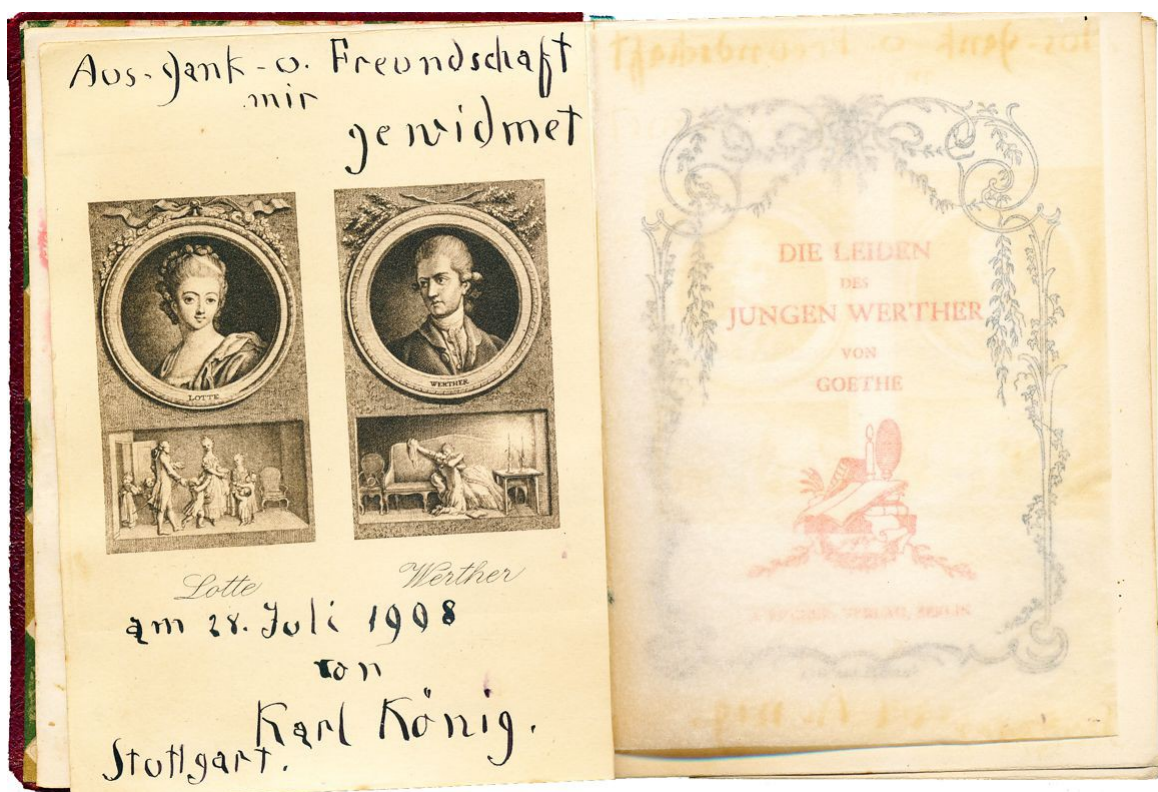 Aus-Dank-u. Freundschaft
mir
gewidmet
LOTTE
WERTHER
Lotte
Werther
am 28. Juli 1908
von
Karl König.
Stuttgart.
DIE LEIDEN
DES
JUNGEN WERTHER
VON
GOETHE
VERLAG, BERLIN